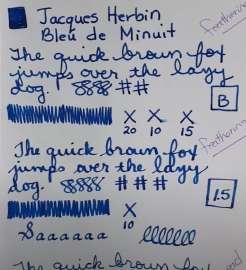 Jacques Herbin
Bleu de Minuit
feathering
The quick brown fox
jumps over the lazy
dog. ##
B
X X X
20 10 15
feathering
The quick brown fox
jumps over the lazy
dog. ###
1.5
X
10
Saaaaaa elllllll
The quick brown fox